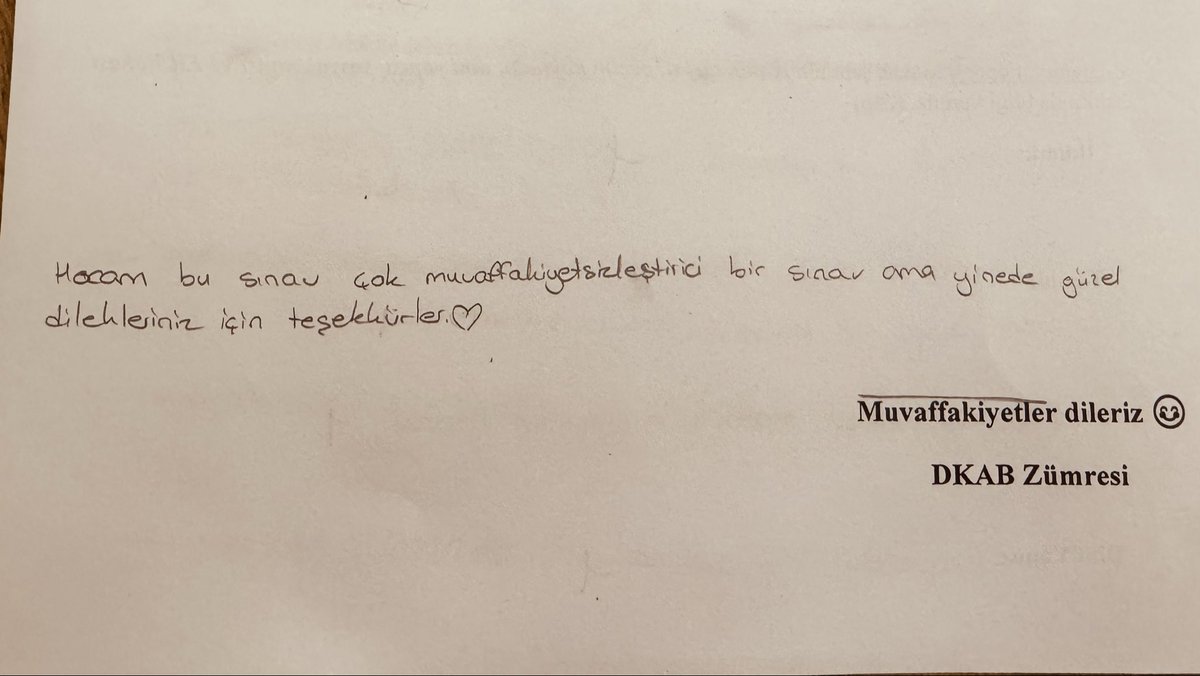 Hocam bu sınav çok muvaffakiyetsizleştirici bir sınav ama yinede güzel
dilekleriniz için teşekkürler.♡
Muvaffakiyetler dileriz ☺
DKAB Zümresi